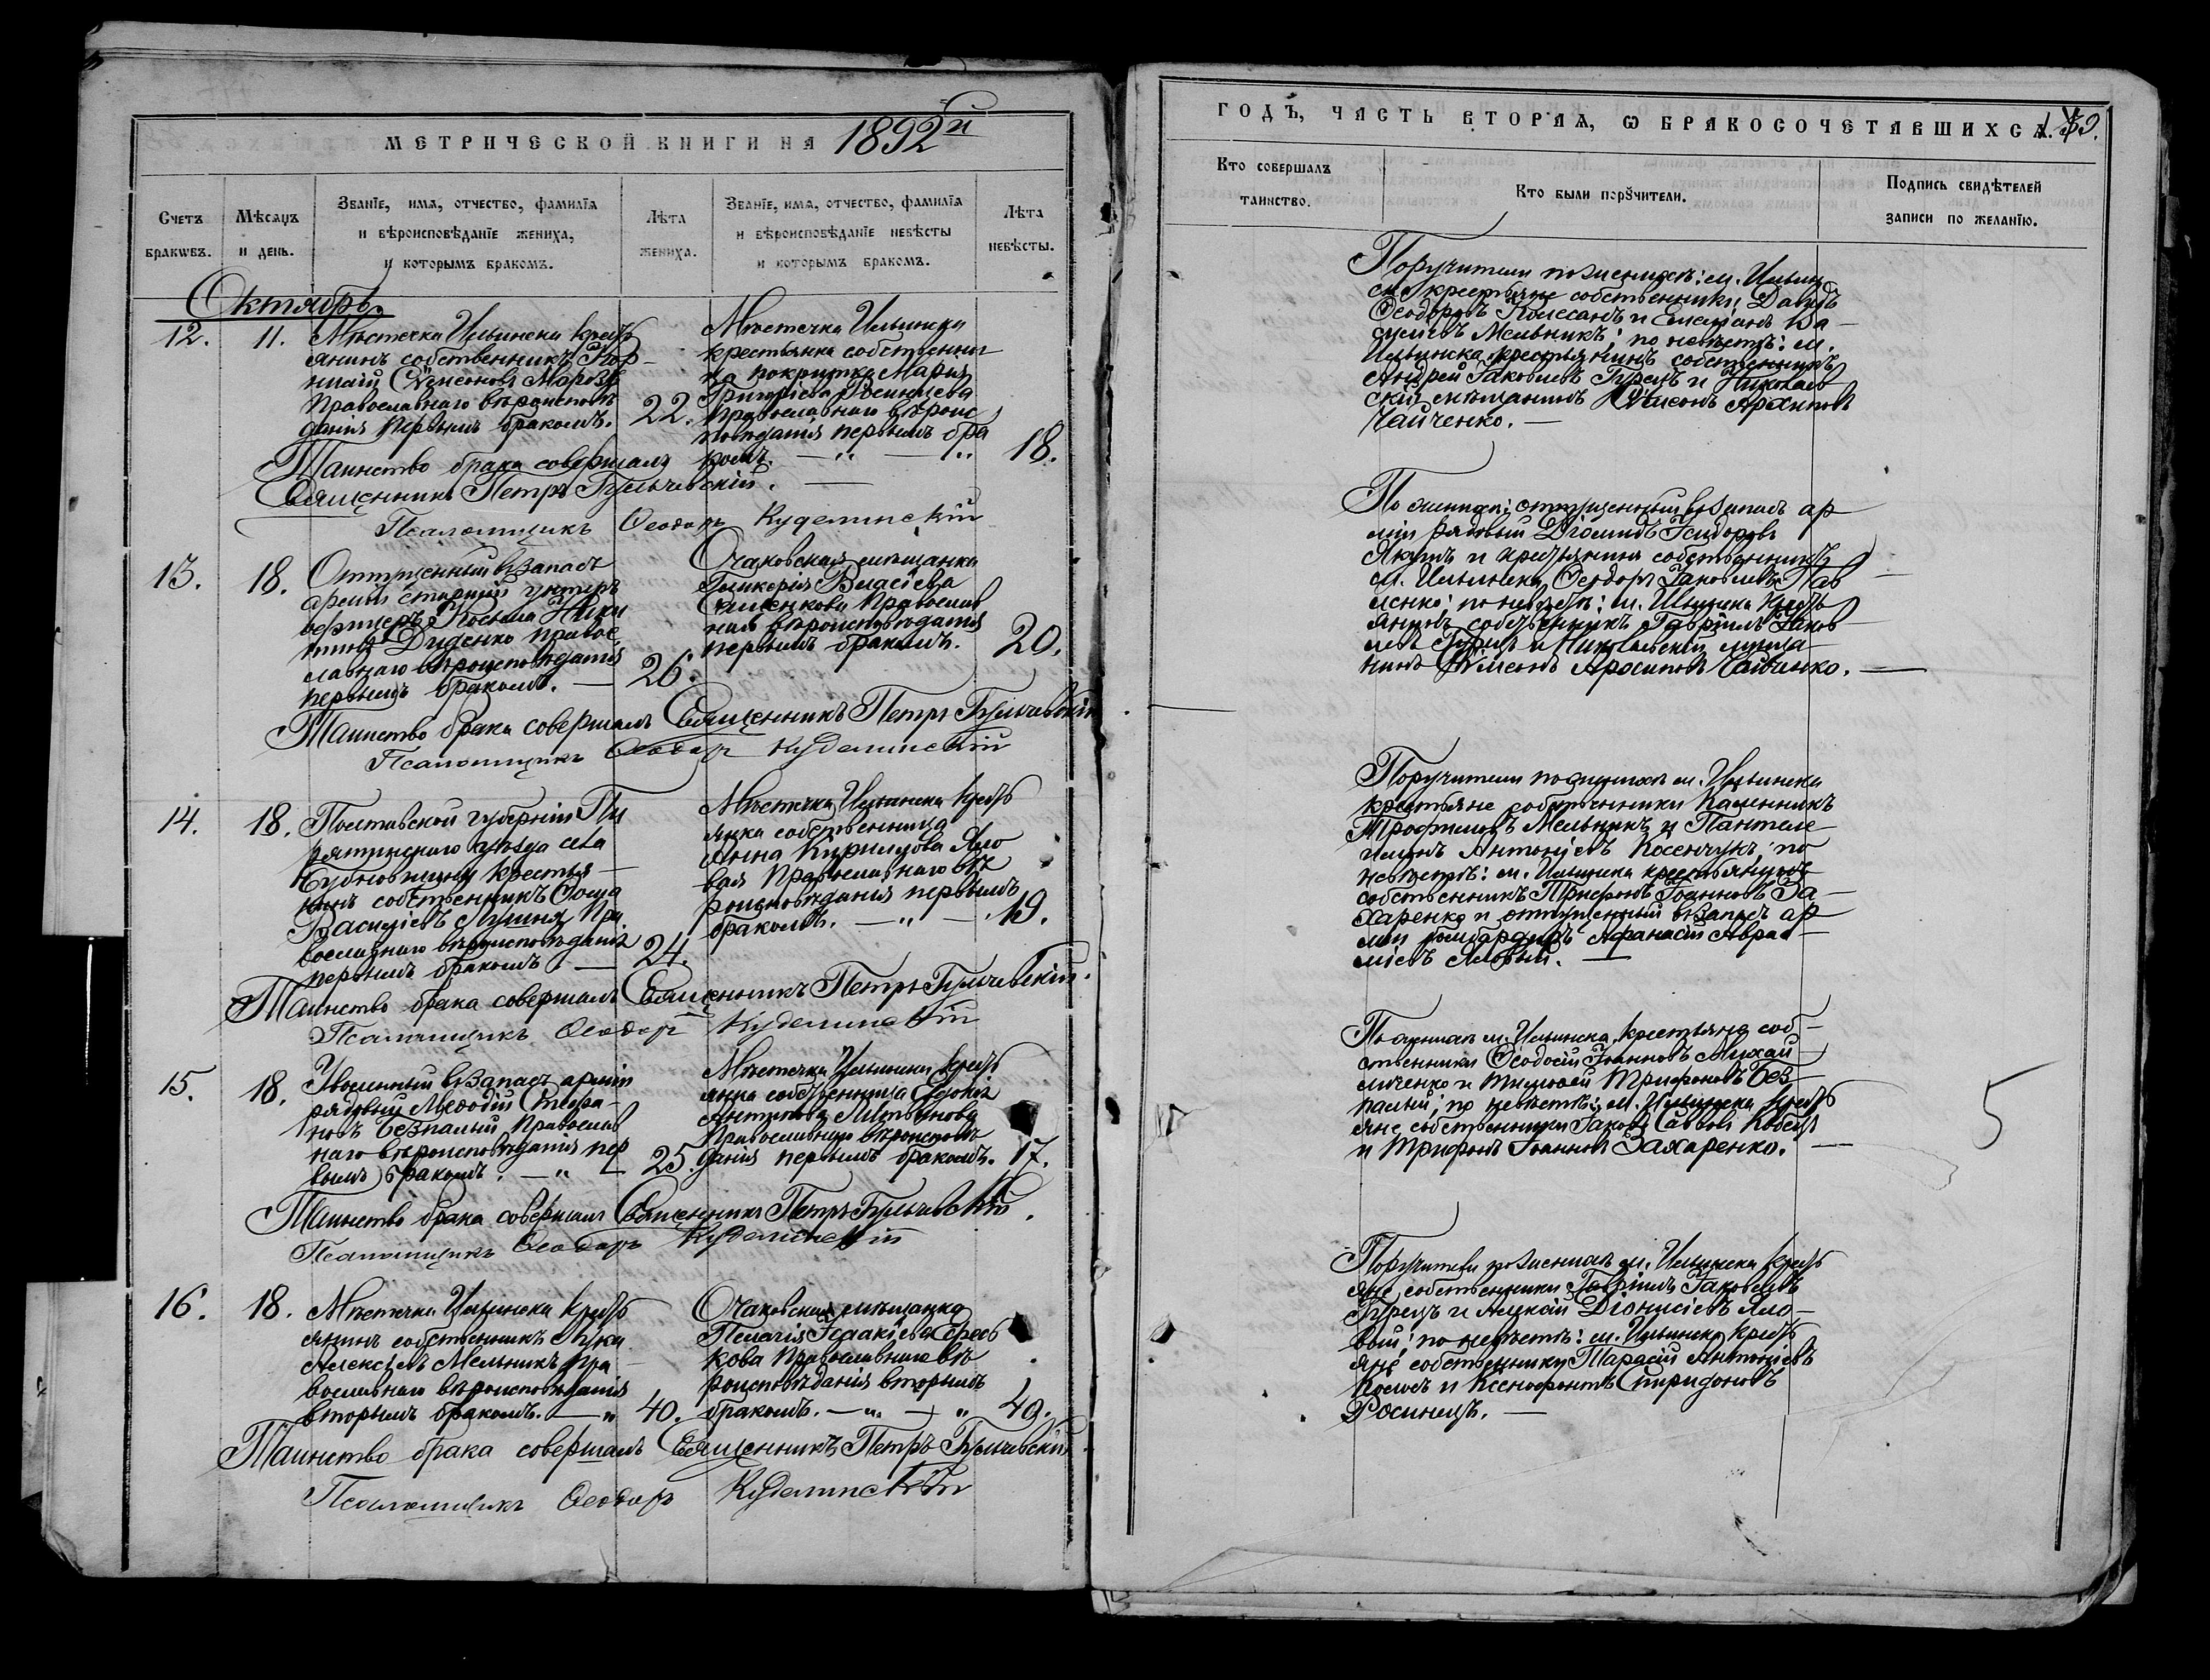 МЕТРИЧЕСКОЙ КНИГИ НА 1892й
Счетъ браковъ.
Мѣсяцъ и день.
Званіе, имя, отчество, фамилія
и вѣроисповѣданіе жениха,
и которымъ бракомъ.
Лѣта жениха.
Званіе, имя, отчество, фамилія
и вѣроисповѣданіе невѣсты
и которымъ бракомъ.
Лѣта невѣсты.
Октябрь.
12. 11.
Мѣстечка Ильинска крестъ
янинъ собственникъ
Сѵмеоновъ
Православнаго вѣроисповѣ
данія первымъ бракомъ.
22.
Мѣстечка Ильинска
крестьянка собственни
ца покрытка Марія
Григоріева Росинцева
Православнаго вѣроис
повѣданія первымъ бра
комъ.
18.
Таинство брака совершалъ
Священникъ Петръ Гульчевскій.
Псаломщикъ Ѳеодоръ Куделинскій
13. 18.
Отпущенный въ запасъ
арміи старшій унтеръ
офицеръ Косьма Ники
тинъ Диденко правос
лавнаго вѣроисповѣданія
первымъ бракомъ.
26.
Очаковская мѣщанка
Гликерія Власіева
Семенкова Православ
наго вѣроисповѣданія
первымъ бракомъ.
20.
Таинство брака совершалъ Священникъ Петръ Гульчевскій
Псаломщикъ Ѳеодоръ Куделинскій
14. 18.
Полтавской губерніи Пи
рятинскаго уѣзда села
крестья
нинъ собственникъ Ѳома
Васильевъ Пра
вославнаго вѣроисповѣданія
первымъ бракомъ.
24.
Мѣстечка Ильинска крестъ
янка собственница
Анна Кириллова Яло
вая Православнаго вѣ
роисповѣданія первымъ
бракомъ.
19.
Таинство брака совершалъ Священникъ Петръ Гульчевскій.
Псаломщикъ Ѳеодоръ Куделинскій
15. 18.
Уволенный въ запасъ арміи
рядовый Меѳодій Стефа-
новъ Безпалый Православ
наго вѣроисповѣданія пер
вымъ бракомъ.
25.
Мѣстечка Ильинска крестъ
янка собственница Евдокія
Антипова Литвинова
Православнаго вѣроисповѣ
данія первымъ бракомъ.
17.
Таинство брака совершалъ Священникъ Петръ Гульчевскій.
Псаломщикъ Ѳеодоръ Куделинскій
16. 18.
Мѣстечка Ильинска крестъ
янинъ собственникъ Лука
Алексѣевъ Мельникъ Пра
вославнаго вѣроисповѣданія
вторымъ бракомъ.
40.
Очаковская мѣщанка
Пелагія Исаакіева
кова Православнаго вѣ
роисповѣданія вторымъ
бракомъ.
49.
Таинство брака совершалъ Священникъ Петръ Гульчевскій
Псаломщикъ Ѳеодоръ Куделинскій
ГОДЪ, ЧАСТЬ ВТОРАЯ, Ѡ БРАКОСОЧЕТАВШИХСЯ.
Кто совершалъ
таинство.
Кто были порꙋчители.
Подпись свидѣтелей
записи по желанію.
Поручители по женихѣ: м. Ильин
ска крестьяне собственники Давидъ
Ѳеодоровъ и Емеліанъ Ва-
силіевъ Мельникъ; по невѣстѣ: м.
Ильинска крестьянинъ собственникъ
Андрей Іаковлевъ Гурецъ и Николаев
скій мѣщанинъ Сѵмеонъ Архиповъ
Чайченко.
По женихѣ: отпущенный въ запасъ ар
міи рядовый Діомидъ Исидоровъ
и крестьянинъ собственникъ
м. Ильинска Ѳеодоръ Іаковлевъ Пав
ленко; по невѣстѣ: м. Ильинска крестъ
янинъ собственникъ Гавріилъ Іаков
левъ Гурецъ и Николаевскій мѣща
нинъ Сѵмеонъ Чайченко.
Поручители по женихѣ м. Ильинска
крестьяне собственники Каленникъ
Трофимовъ Мельникъ и Пантеле
имонъ Антоніевъ Косенчукъ; по
невѣстѣ: м. Ильинска крестьянинъ
собственникъ Трифонъ Іоанновъ За-
харенко и отпущенный въ запасъ ар
міи бомбардиръ Аѳанасій Авра-
міевъ Яловый.
По женихѣ м. Ильинска крестьяне соб-
ственники Ѳеодосій Іоанновъ Михай
личенко и Тимоѳей Трифоновъ Без-
палый; по невѣстѣ: м. Ильинска крестъ
яне собственники Іаковъ Саввовъ
и Трифонъ Іоанновъ Захаренко.
5
Поручители по женихѣ м. Ильинска крестъ
яне собственники Гавріилъ Іаковлевъ
Гурецъ и Алексій Діонисіевъ Яло-
вый; по невѣстѣ: м. Ильинска крестъ
яне собственники Тарасій Антоніевъ
и Ксенофонтъ Спиридоновъ
Росинецъ.